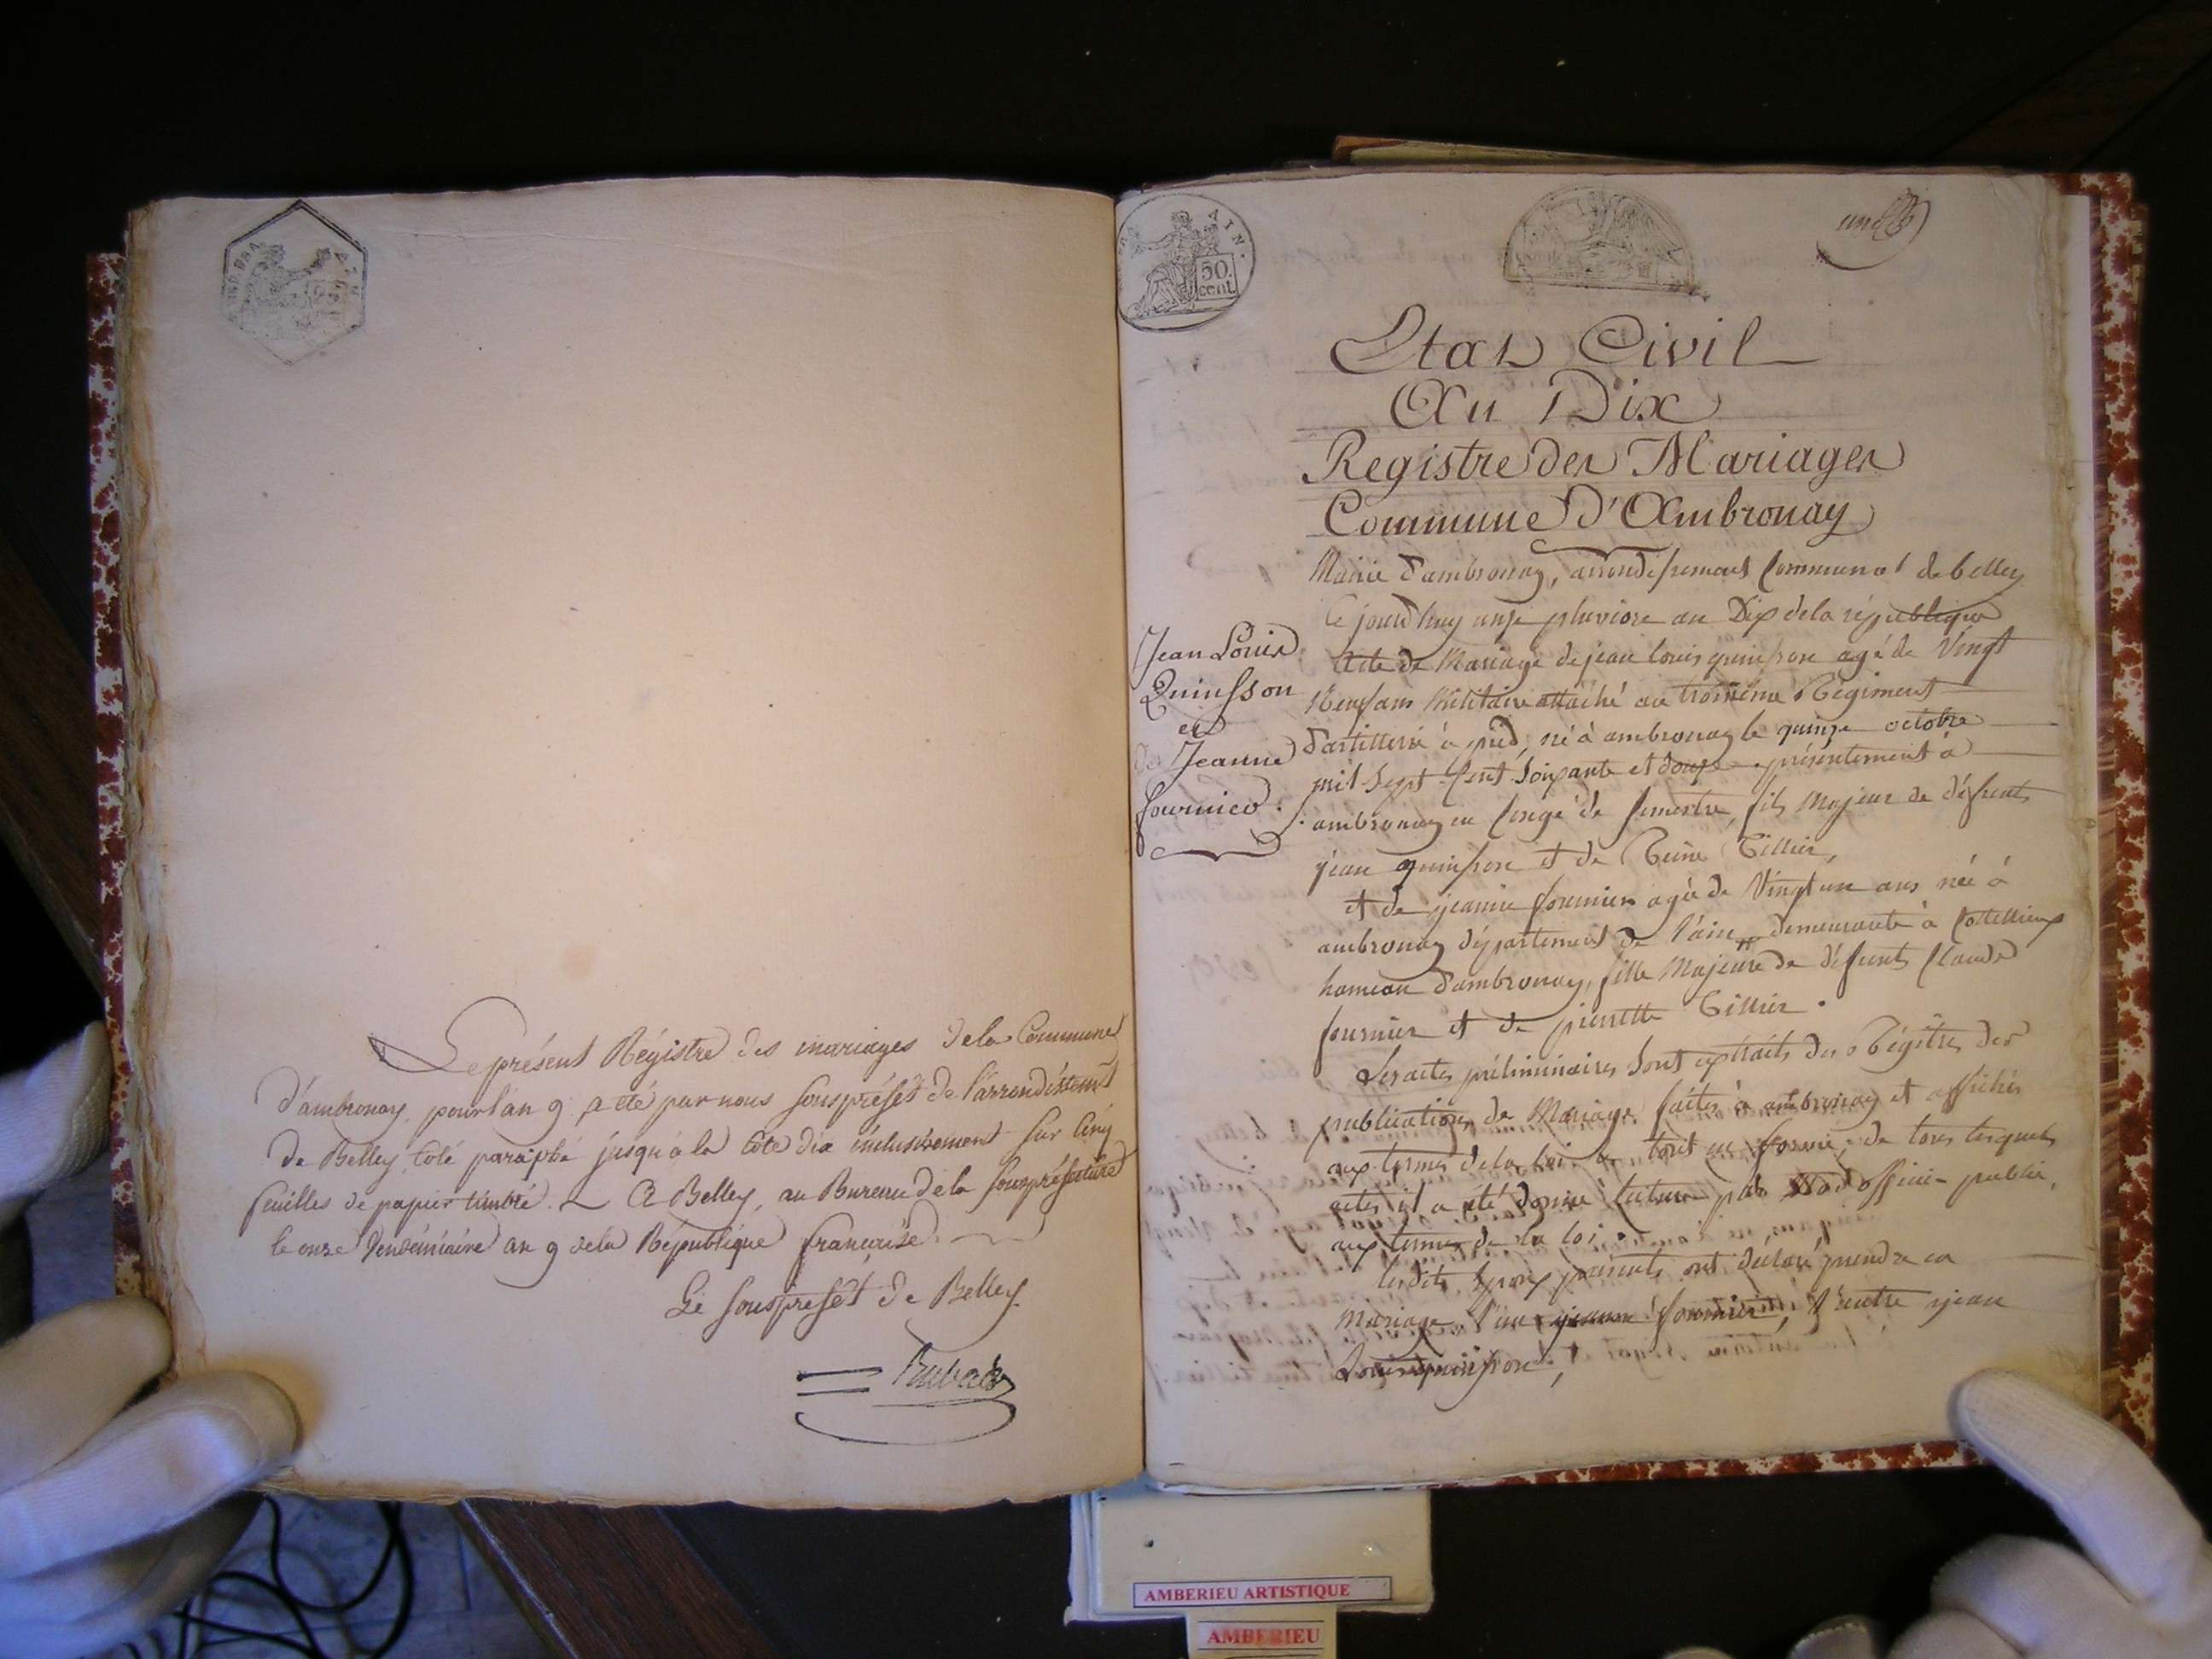 Le présent Régistre des mariages de la Commune
d'ambronay, pour l'an 9 a été par nous Sousprését de l'arrondissemt
de Belley, Coté paraphé jusqu'à la Côte dix inclusivement Sur Cinq
feuilles de papier timbré. A Belley, au Bureau de la Sousprésecture
le onze Vendémiaire an 9 de la République française.
Le Sousprését de Belley.
AIN.
50.
cent.
un
Etat Civil
An Dix
Registre des Mariages
Commune D'Ambronay
Jean Louis
Quinsson
et
de Jeanne
fournier.
Mairie d'ambronay, arrondissement Communal de belley
Ce jourd'huy onze pluviose an Dix de la république
Acte de Mariage de jean louis quinson agé de Vingt
Neuf ans Militaire attaché au troisième Régiment
d'artillerie à pied, né à ambronay le quinze octobre
mil Sept Cent Soixante et douze présentement à
ambronay en Congé de Semestre, fils Majeur de défunts
jean quinson et de Reine Tillier,
et de jeanne fournier agée de Vingt un ans née à
ambronay département de l'ain demeurante à Cottellieux
hameau d'ambronay, fille Majeure de défunts Claude
fournier et de pierrette Tillier.
Les actes préliminaires Sont extraits des Régistres des
publications de Mariage faites à ambronay et affichés
aux termes de la loi le tout en forme, de tous lesquels
actes il a été donné lecture par Moi officier public,
aux termes de la loi.
lesdits Epoux présents ont déclaré prendre en
Mariage l'un jeanne fournier, l'autre jean
Louis quinson,
AMBERIEU ARTISTIQUE
AMBERIEU